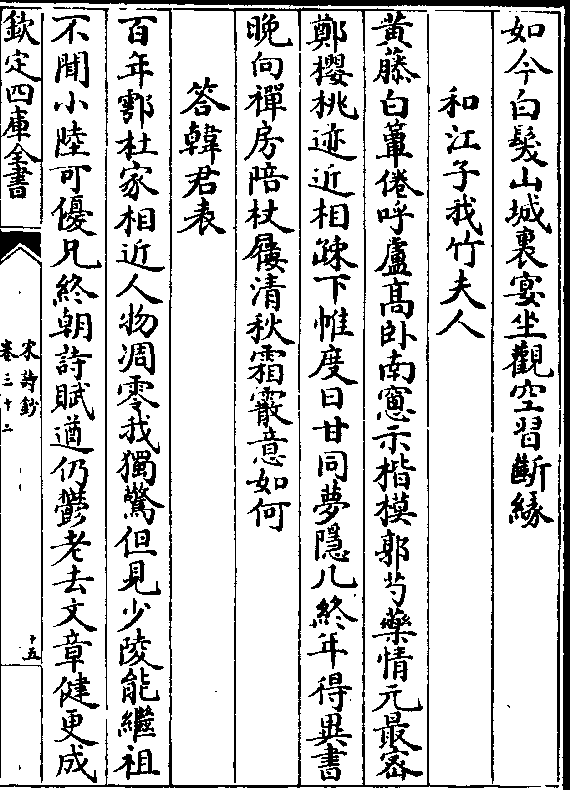 如今白髮山城裏宴坐觀空習斷緣
和江子我竹夫人
黄藤白簟倦呼盧髙卧南窻示楷模郭芍藥情元最宻
鄭櫻桃迹近相疎下帷度日甘同夢隱几終年得異書
晚向禪房陪杖屨清秋霜霰意如何
答韓君表
百年鄠杜家相近人物凋零我獨驚但見少陵能繼祖
不聞小陸可優兄終朝詩賦遒仍鬱老去文章健更成
欽定四庫全書
宋詩鈔
卷三十二
十五